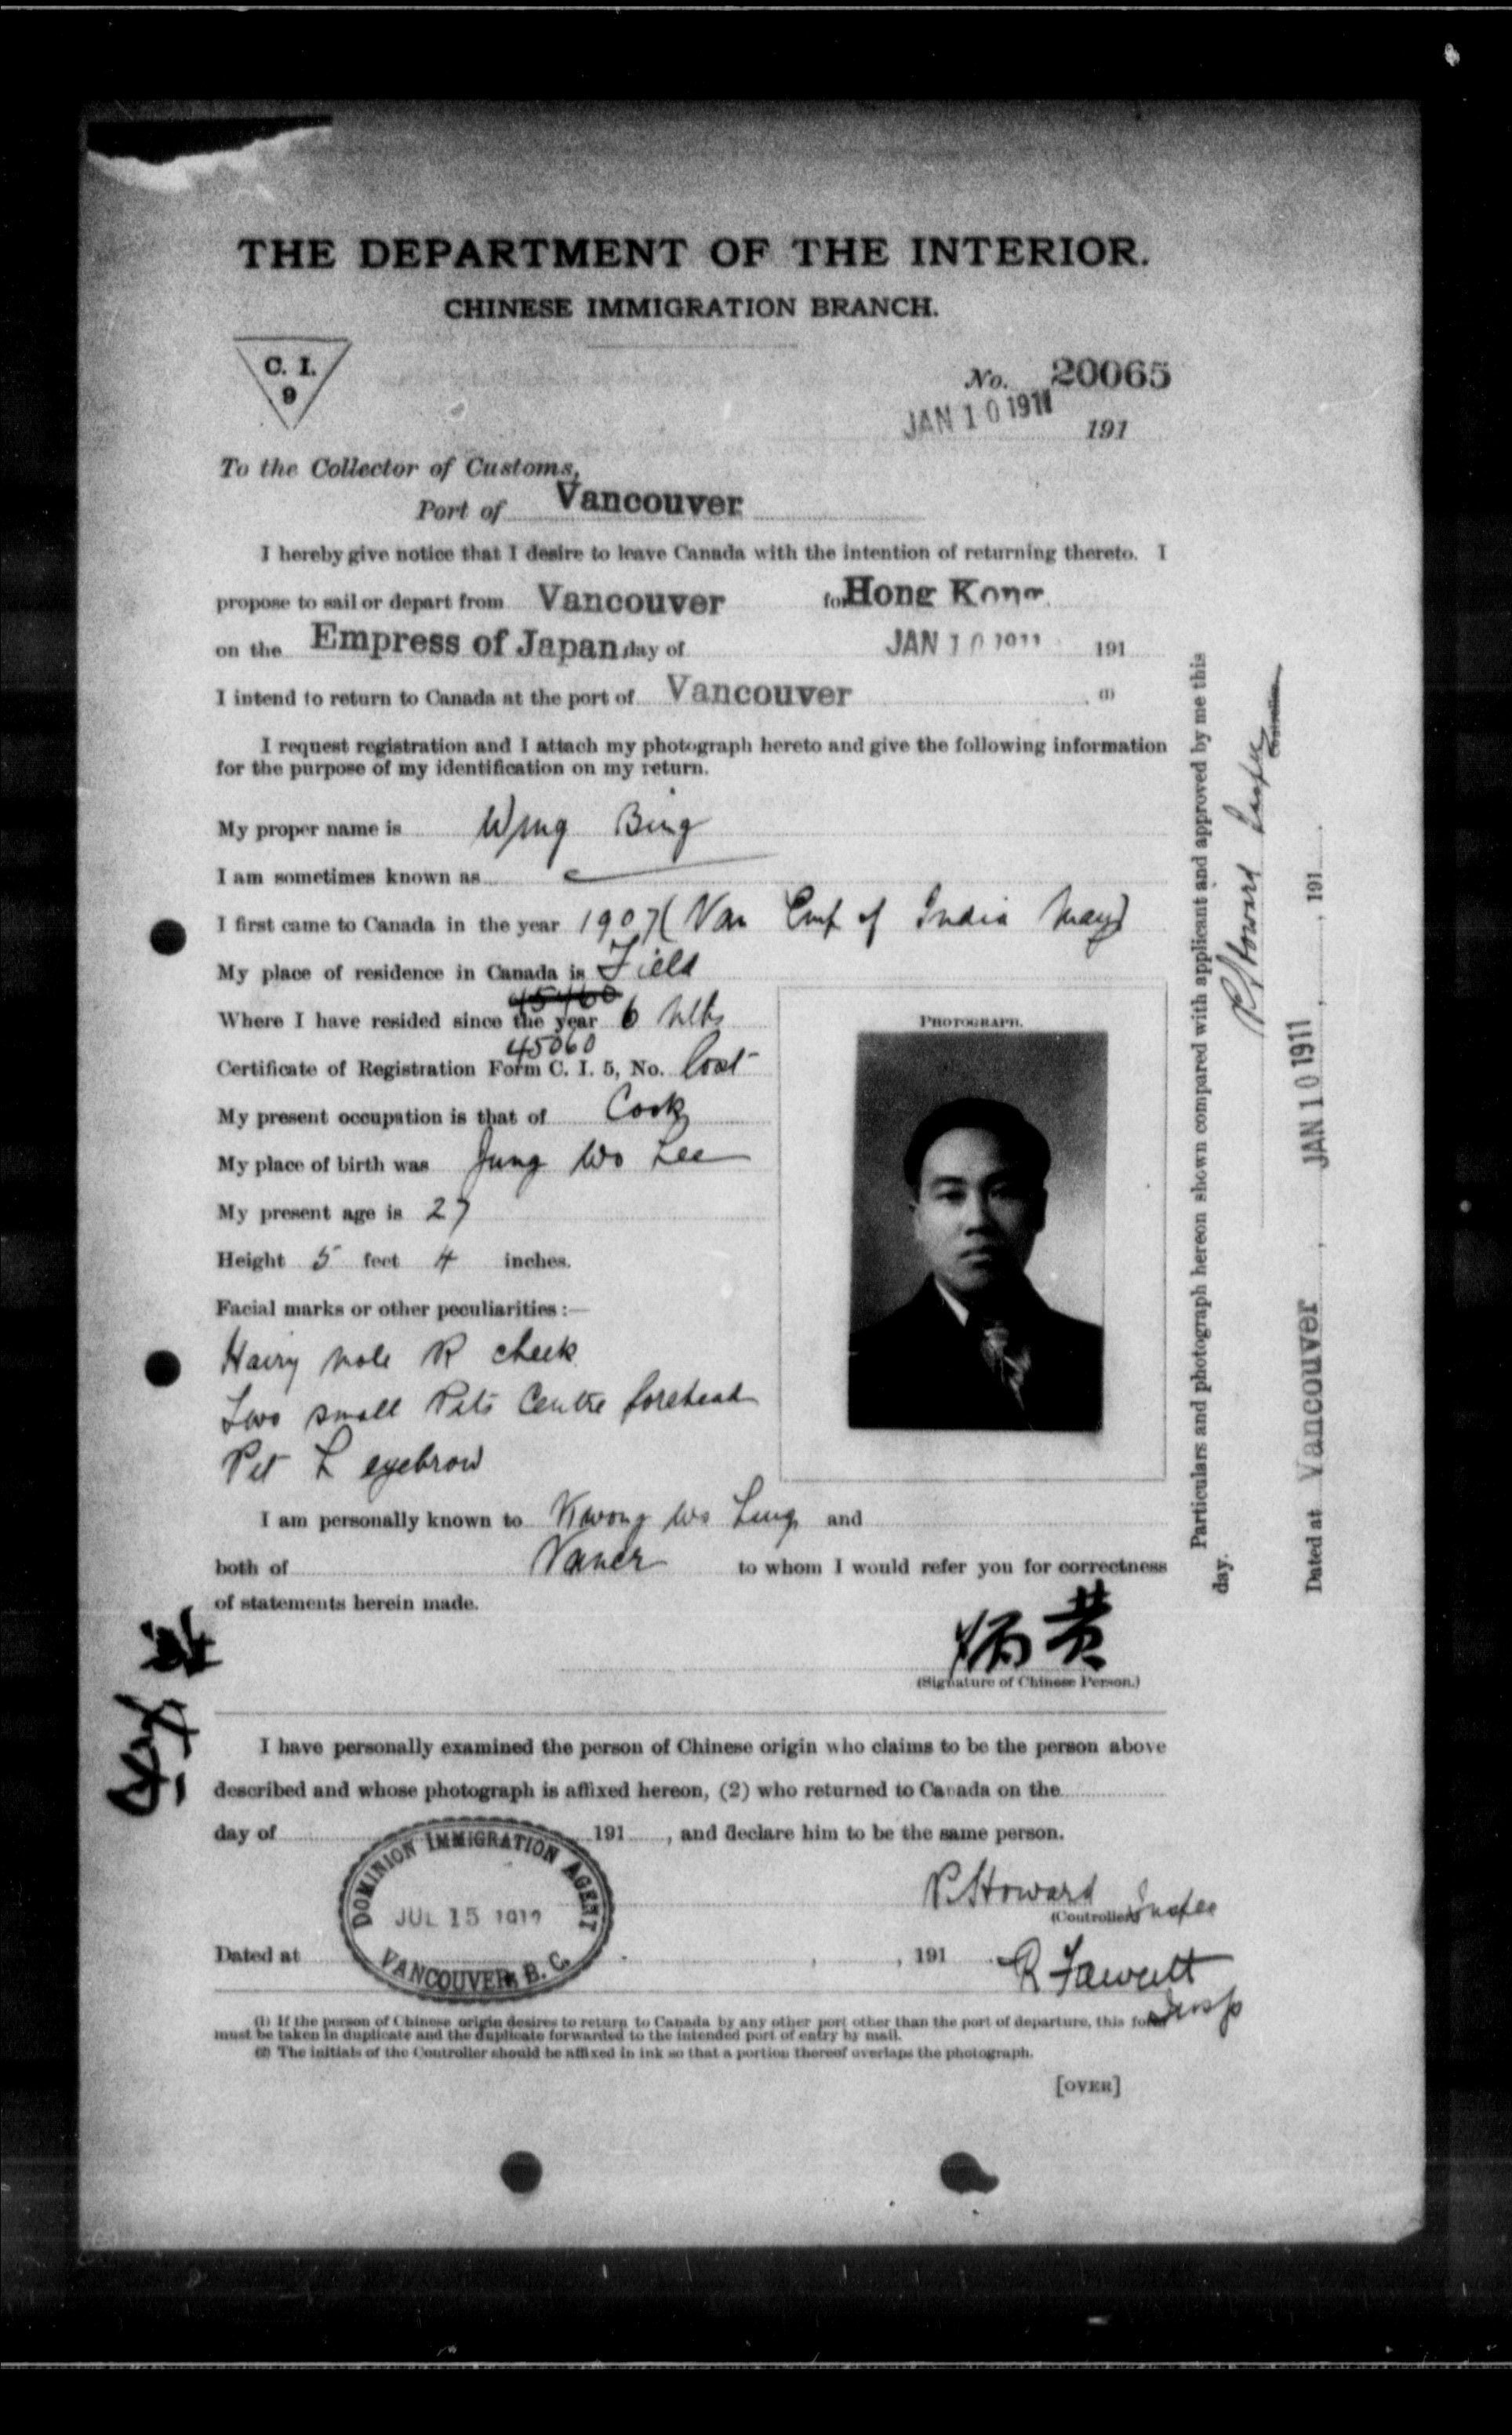 THE DEPARTMENT OF THE INTERIOR.
CHINESE IMMIGRATION BRANCH.
C. I.
9
No. 20065
JAN 10 1911 191
To the Collector of Customs,
Port of Vancouver
I hereby give notice that I desire to leave Canada with the intention of returning thereto. I
propose to sail or depart from Vancouver for Hong Kong
on the Empress of Japan day of JAN 10 1911 191
I intend to return to Canada at the port of Vancouver . (1)
I request registration and I attach my photograph hereto and give the following information
for the purpose of my identification on my return.
My proper name is Wong Bing
I am sometimes known as
I first came to Canada in the year 1907 (Van Emp of India May)
My place of residence in Canada is Field
45460
Where I have resided since the year 6 Mths
45060
Certificate of Registration Form C. I. 5, No. Lost
My present occupation is that of Cook
My place of birth was Jung Wo Lee
My present age is 27
Height 5 feet 4 inches.
Facial marks or other peculiarities :—
Hairy mole R cheek
Two small Pits Centre forehead
Pit L eyebrow
PHOTOGRAPH.
I am personally known to Kwong Wo Lung and
both of Vancr to whom I would refer you for correctness
of statements herein made.
炳黄
(Signature of Chinese Person.)
I have personally examined the person of Chinese origin who claims to be the person above
described and whose photograph is affixed hereon, (2) who returned to Canada on the
day of 191 , and declare him to be the same person.
DOMINION IMMIGRATION AGENT
JUL 15 1912
VANCOUVER, B. C.
R Howard Inspec
(Controller)
Dated at , 191
R Fawcett
Insp
(1) If the person of Chinese origin desires to return to Canada by any other port other than the port of departure, this form
must be taken in duplicate and the duplicate forwarded to the intended port of entry by mail.
(2) The initials of the Controller should be affixed in ink so that a portion thereof overlaps the photograph.
[OVER]
Particulars and photograph hereon shown compared with applicant and approved by me this
day.
R Howard Inspec
Controller
Dated at Vancouver , JAN 10 1911 , 191